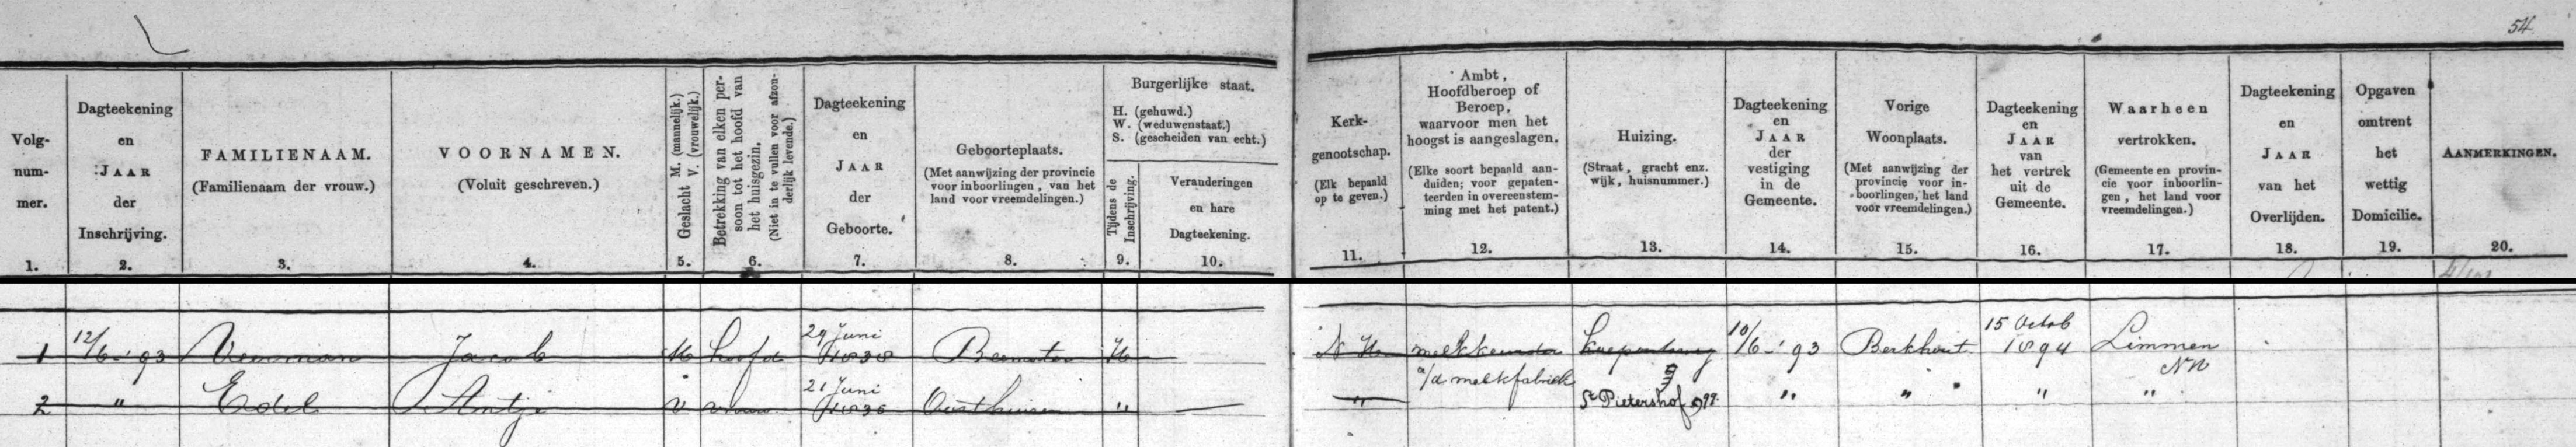 54
Volg-
num-
mer.
1.
Dagteekening
en
JAAR
der
Inschrijving.
2.
FAMILIENAAM.
(Familienaam der vrouw.)
3.
VOORNAMEN.
(Voluit geschreven.)
4.
Geslacht M. (mannelijk.)
V. (vrouwelijk.)
5.
Betrekking van elken per-
soon tot het hoofd van
het huisgezin.
(Niet in te vullen voor afzon-
derlijk levende.)
6.
Dagteekening
en
JAAR
der
Geboorte.
7.
Geboorteplaats.
(Met aanwijzing der provincie
voor inboorlingen, van het
land voor vreemdelingen.)
8.
Burgerlijke staat.
H. (gehuwd.)
W. (weduwenstaat.)
S. (gescheiden van echt.)
Tijdens de
Inschrijving.
9.
Veranderingen
en hare
Dagteekening.
10.
Kerk-
genootschap.
(Elk bepaald
op te geven.)
11.
Ambt,
Hoofdberoep of
Beroep,
waarvoor men het
hoogst is aangeslagen.
(Elke soort bepaald aan-
duiden; voor gepaten-
teerden in overeenstem-
ming met het patent.)
12.
Huizing.
(Straat, gracht enz.
wijk, huisnummer.)
13.
Dagteekening
en
JAAR
der
vestiging
in de
Gemeente.
14.
Vorige
Woonplaats.
(Met aanwijzing der
provincie voor in-
boorlingen, het land
voor vreemdelingen.)
15.
Dagteekening
en
JAAR
van
het vertrek
uit de
Gemeente.
16.
Waarheen
vertrokken.
(Gemeente en provin-
cie voor inboorlin-
gen, het land voor
vreemdelingen.)
17.
Dagteekening
en
JAAR
van het
Overlijden.
18.
Opgaven
omtrent
het
wettig
Domicilie.
19.
AANMERKINGEN.
20.
1 12/6-'93 Veerman Jacob M hoofd 29 Juni 1838 Beemster H — N H 10/6-'93 Berkhout 15 Octob 1894 Limmen NH
a/d melkfabriek
2 " Edel Antje V vrouw 21 Juni 1836 Oosthuizen " — " St Pietershof " " " "